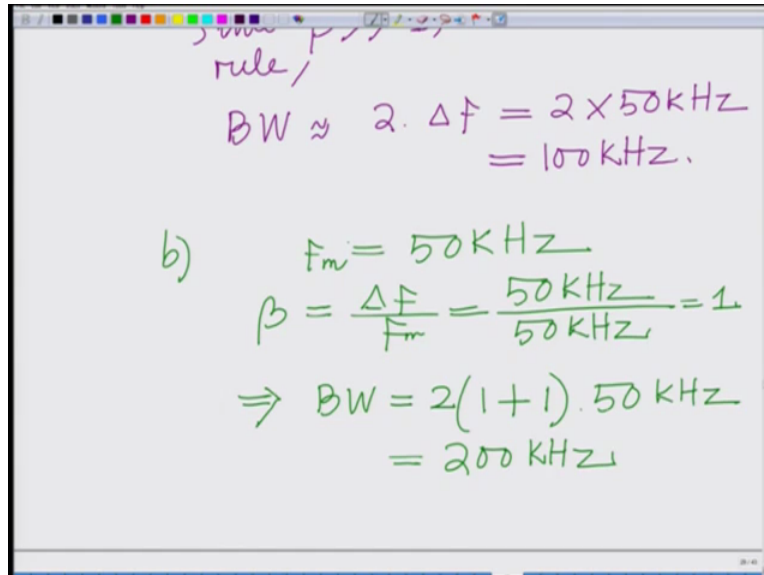 rule,
BW ≈ 2. ΔF = 2 × 50KHZ
= 100 KHZ.
b) Fm = 50KHZ
β = ΔF/Fm = 50KHZ/50KHZ = 1.
⇒ BW = 2(1+1).50KHZ
= 200 KHZ